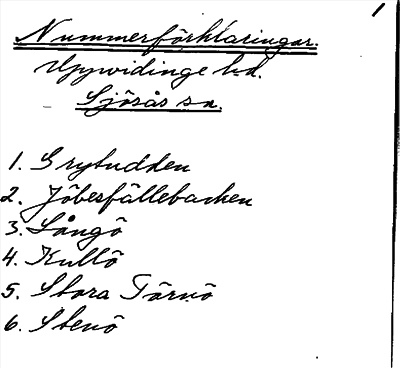 1
Nummerförklaringar.
Uppvidinge hd.
Sjösås sn.
1. Grytudden
2. Jöbesfällebacken
3. Långö
4. Kullö
5. Stora Törnö
6. Stenö